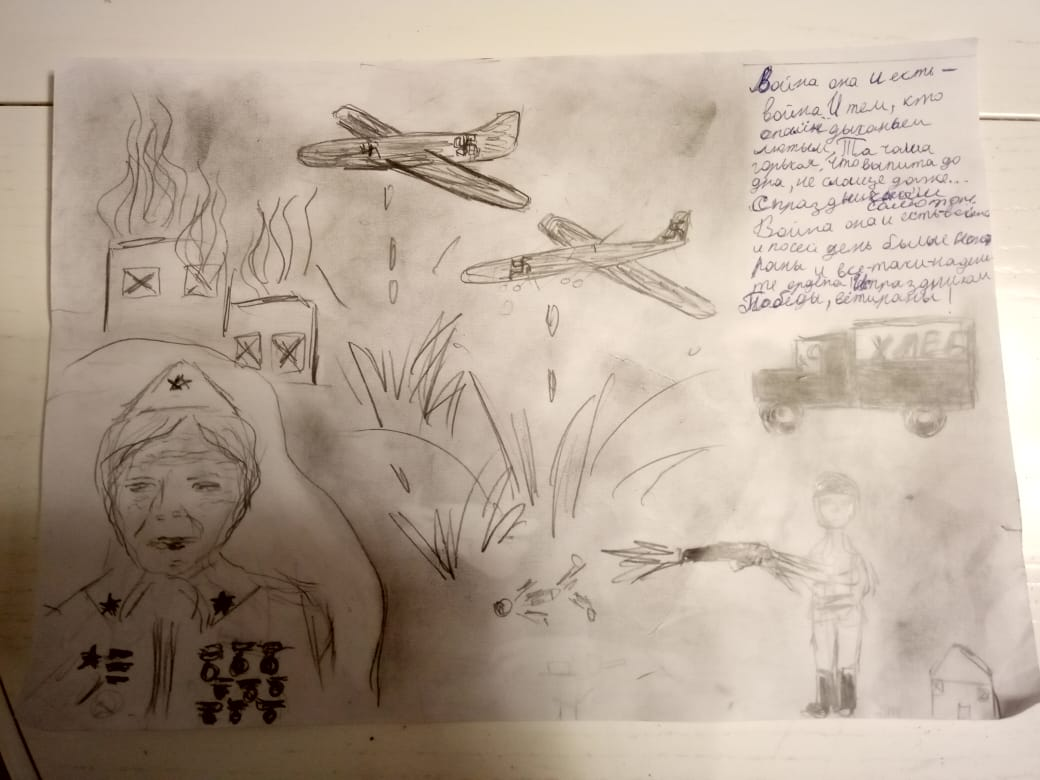 Война она и есть –
война. И тем, кто
опалён дыханьем
лютым, Та чаша
горькая, что выпита до
дна, не слаще даже...
С праздничным
салютом.
Война она и есть война
и посей день былые
раны и все-таки наден
те ордена! И праздникам
Победы, ветираны!
ХЛЕБ